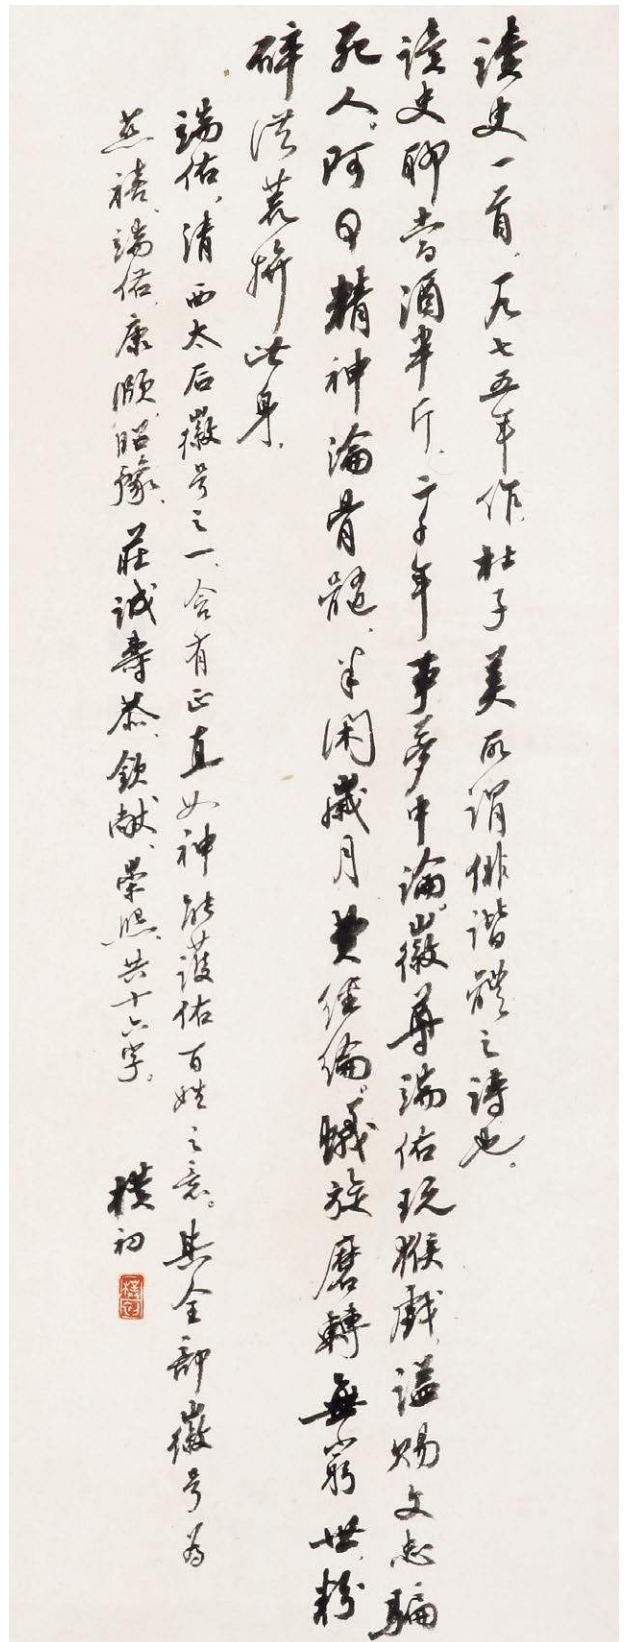 读史一首，一九七五年作，杜子美所谓俳谐體之诗也。
读史聊当酒半斤，二千年事夢中論。徽尊端佑玩猴戲，谥赐文忠骗
死人。阿Q精神淪骨髓，半闲歲月费经纶。蟻旋磨轉無窮世，粉
碎洪荒拚此身。
端佑，清西太后徽号之一，含有正直女神能護佑百姓之意。其全部徽号为
慈禧、端佑、康颐、昭豫、莊诚、壽恭、钦献、崇熙，共十六字。
樸初
樸初